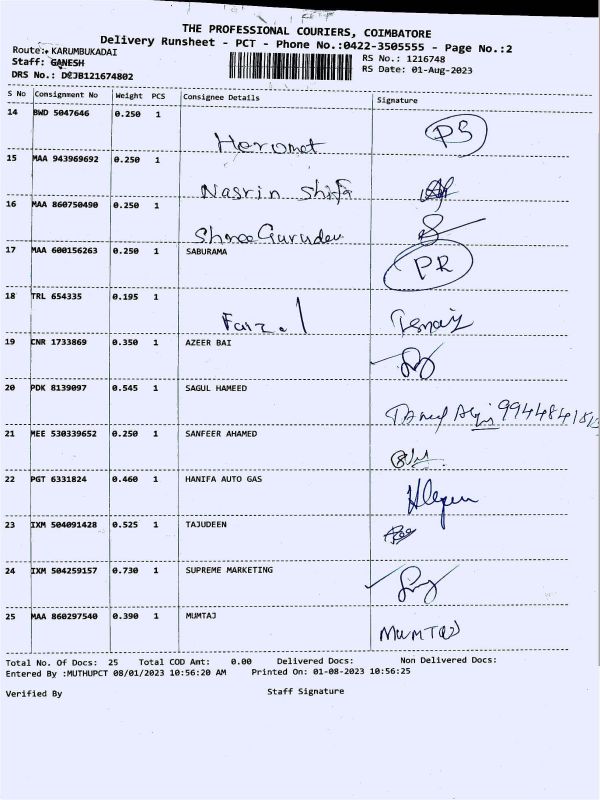 THE PROFESSIONAL COURIERS, COIMBATORE
Delivery Runsheet - PCT - Phone No.:0422-3505555 - Page No.:2
Route: KARUMBUKADAI
RS No.: 1216748
Staff: GANESH
RS Date: 01-Aug-2023
DRS No.: DCJB121674802
S No Consignment No Weight PCS Consignee Details Signature
14 BWD 5047646 0.250 1 PS
15 MAA 943969692 0.250 1 Nasrin
16 MAA 860750490 0.250 1 Shree Gurudev
17 MAA 600156263 0.250 1 SABURAMA PR
18 TRL 654335 0.195 1
19 CNR 1733869 0.350 1 AZEER BAI
20 PDK 8139097 0.545 1 SAGUL HAMEED
21 MEE 530339652 0.250 1 SANFEER AHAMED
22 PGT 6331824 0.460 1 HANIFA AUTO GAS
23 IXM 504091428 0.525 1 TAJUDEEN
24 IXM 504259157 0.730 1 SUPREME MARKETING
25 MAA 860297540 0.390 1 MUMTAJ MUMTAJ
Total No. Of Docs: 25 Total COD Amt: 0.00 Delivered Docs: Non Delivered Docs:
Entered By :MUTHUPCT 08/01/2023 10:56:20 AM Printed On: 01-08-2023 10:56:25
Verified By Staff Signature